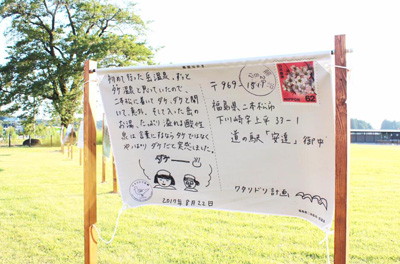 初めて行った岳温泉。ずっと
タケ温泉と思っていたので、
二本松に着いてダケ、ダケと聞
いて、
お湯、たっぷり溢れる酸性
泉は言葉にするならタケではなく
やっぱりダケだと実感しました。
ダケ
2019年8月22日
〒969-1511
福島県二本松市
下川崎字上平33-1
道の駅「安達」御中
ワタリドリ計画
62